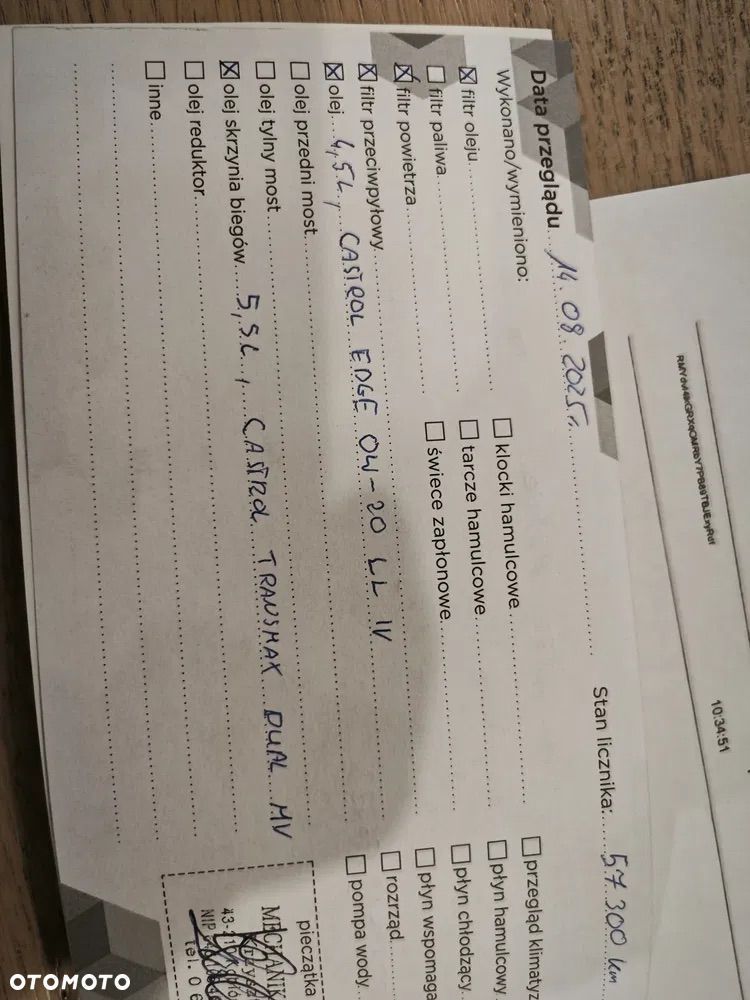 Data przeglądu 14.08.2025r. Stan licznika: 57 300 km
Wykonano/wymieniono:
filtr oleju
filtr paliwa
filtr powietrza
filtr przeciwpyłowy
olej 4,5L, CASTROL EDGE 0W-20 LL IV
olej przedni most
olej tylny most
olej skrzynia biegów 5,5L, CASTROL TRANSMAX DUAL MV
olej reduktor
inne
klocki hamulcowe
tarcze hamulcowe
świece zapłonowe
przegląd klimatyz
płyn hamulcowy
płyn chłodzący
płyn wspomaga
rozrząd
pompa wody
pieczątka
MECHANIK
43-21
NIP
tel. 0 6
10:34:51
OTOMOTO